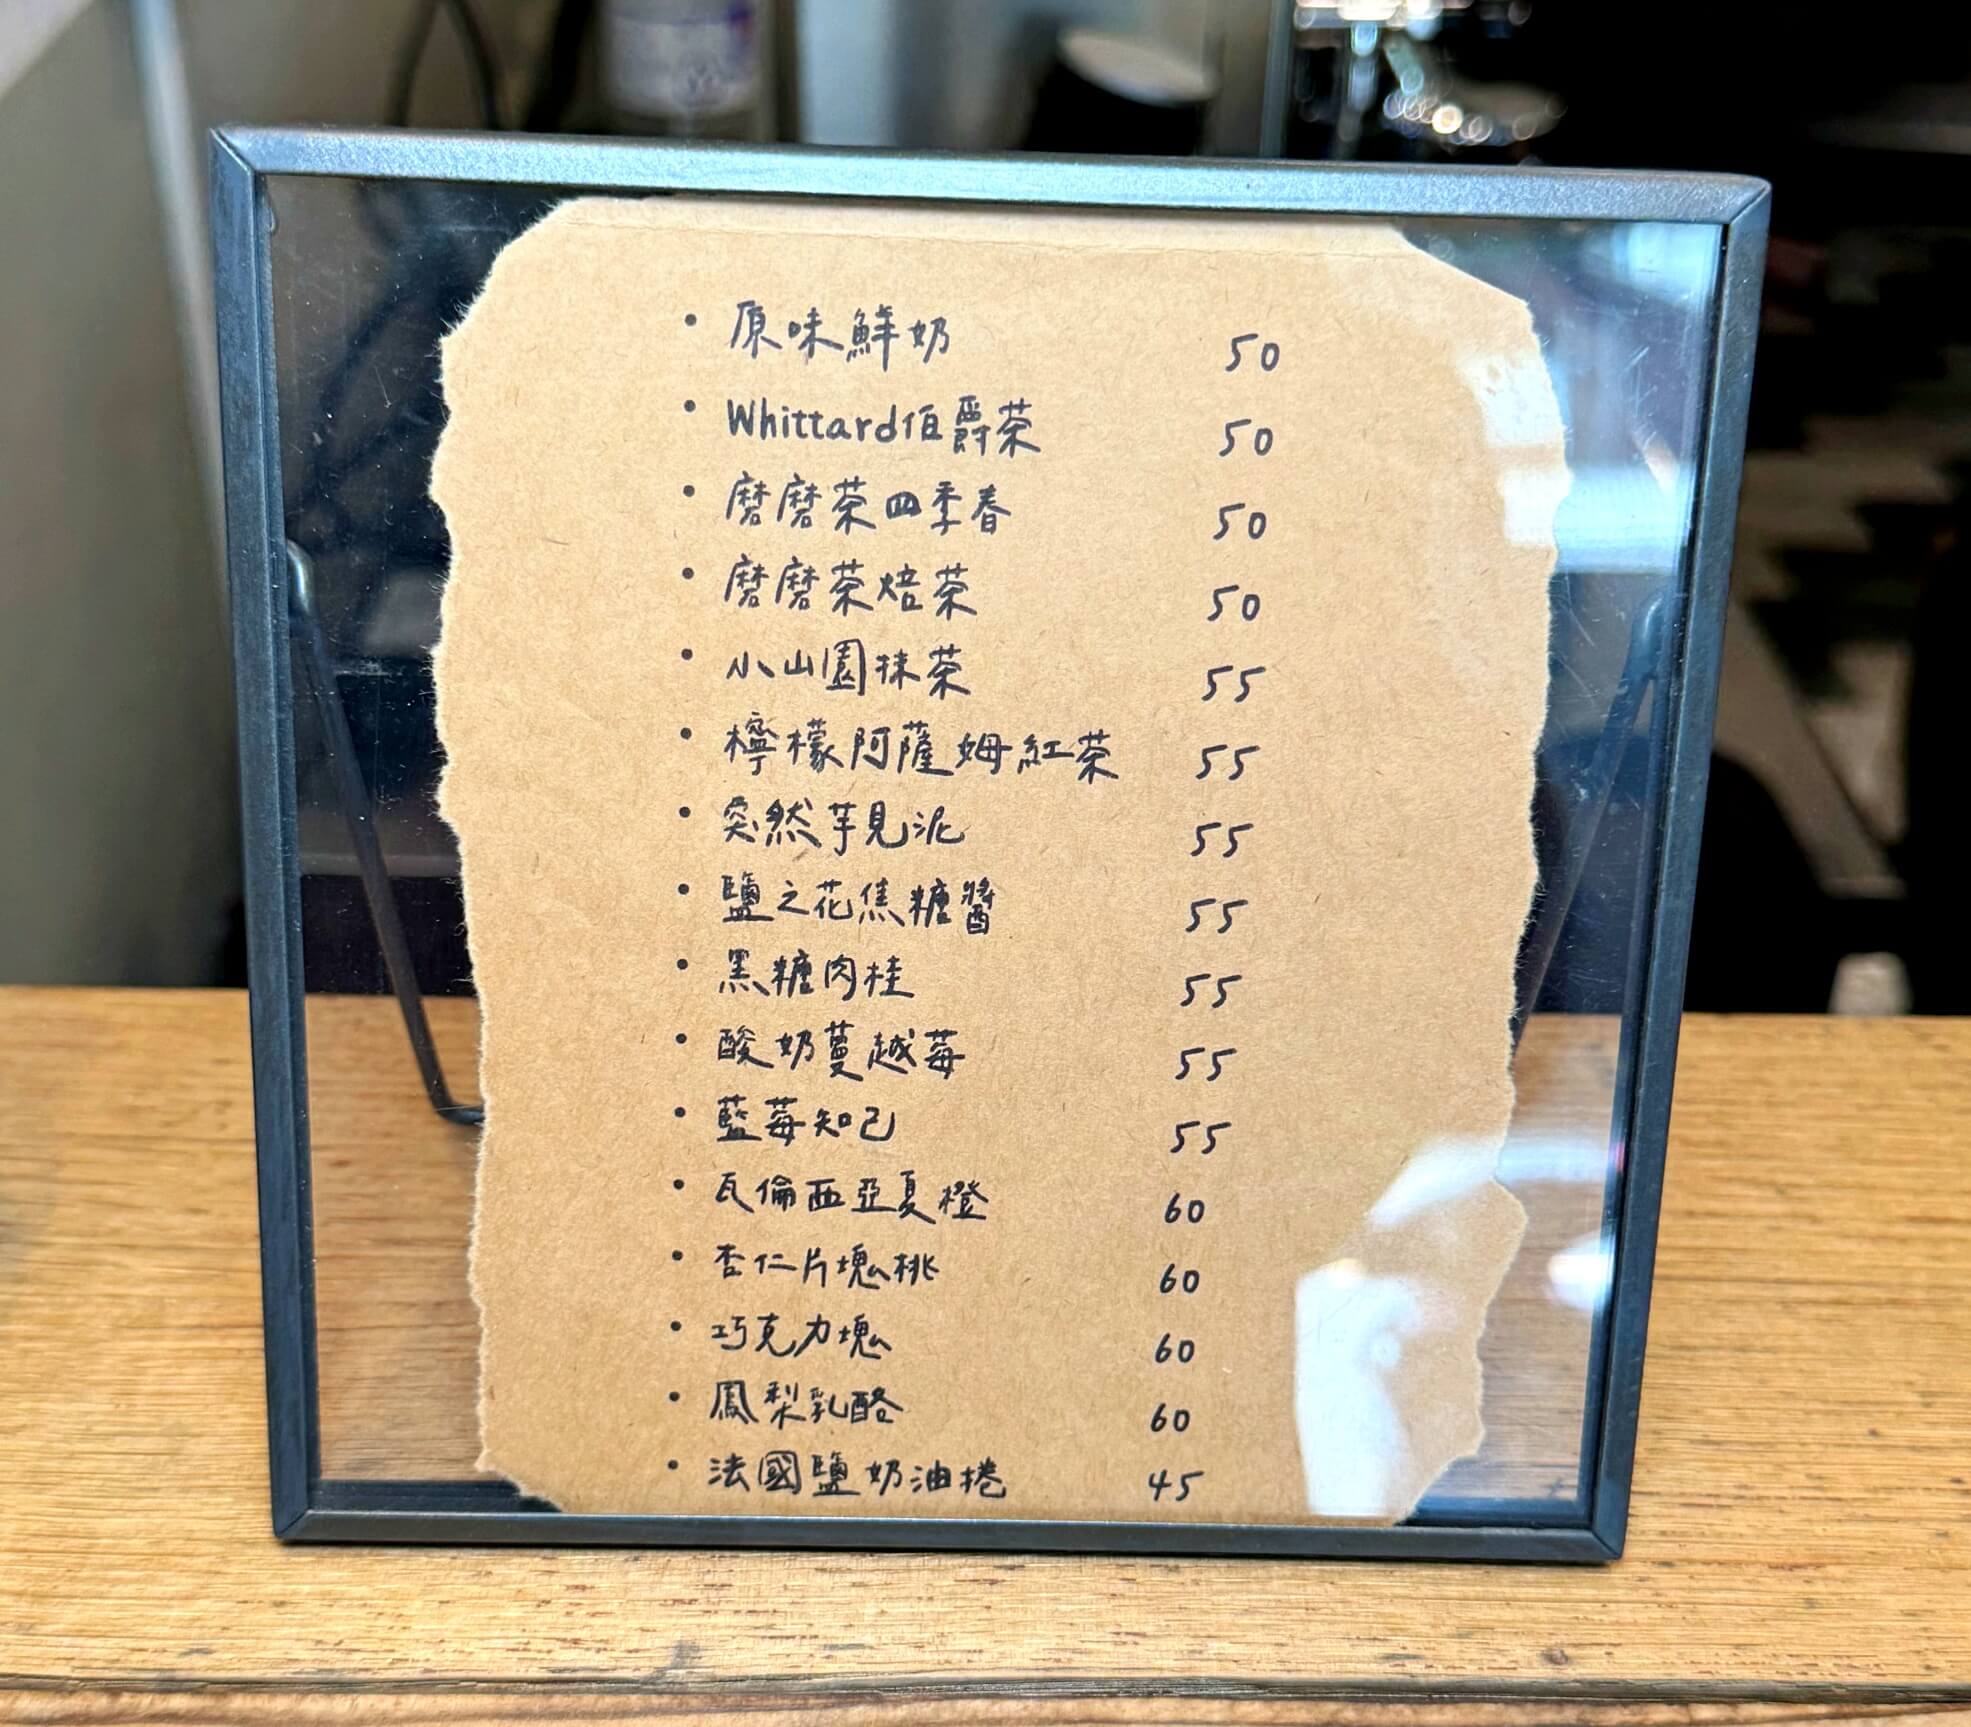 • 原味鮮奶 50
• Whittard伯爵茶 50
• 磨磨茶四季春 50
• 磨磨茶焙茶 50
• 小山園抹茶 55
• 檸檬阿薩姆紅茶 55
• 突然芋見泥 55
• 鹽之花焦糖醬 55
• 黑糖肉桂 55
• 酸奶蔓越莓 55
• 藍莓知己 55
• 瓦倫西亞夏橙 60
• 杏仁片塊桃 60
• 巧克力塊 60
• 鳳梨乳酪 60
• 法國鹽奶油捲 45